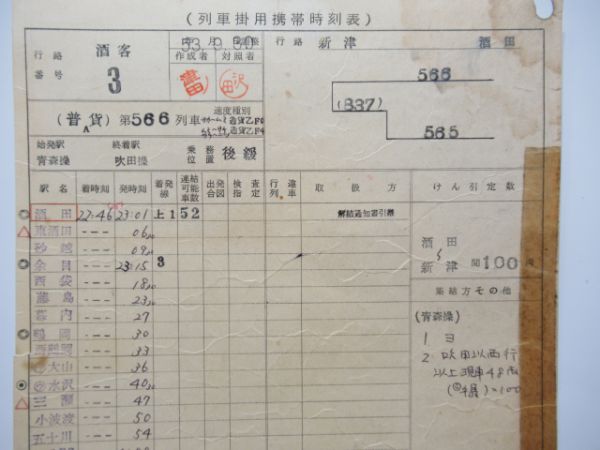 (列車掛用携帯時刻表)
行路番号
酒客
3
53.9.30
作成者
対照者
沢田
行路
新津
酒田
566
(837)
565
(普貨)第566列車
A
速度種別
始発駅
青森操
終着駅
吹田操
乗務位置
後級
駅名 着時刻 発時刻 着発線 連結可能車数 出発合図 検査指定 行違列車 取扱方 けん引定数
酒田 22-46 23-01 上1 52 解結通知書引継
東酒田 --- 06
砂越 --- 09
余目 23-15 3
西袋 --- 18
藤島 --- 23
幕内 --- 27
鶴岡 --- 30
羽前大山 --- 36
水沢 --- 40
三瀬 --- 47
小波渡 --- 50
五十川 --- 54
酒田
〜
新津
間100両
集結方その他
(青森操)
1 ヨ
2 吹田以西行
以上現車48両